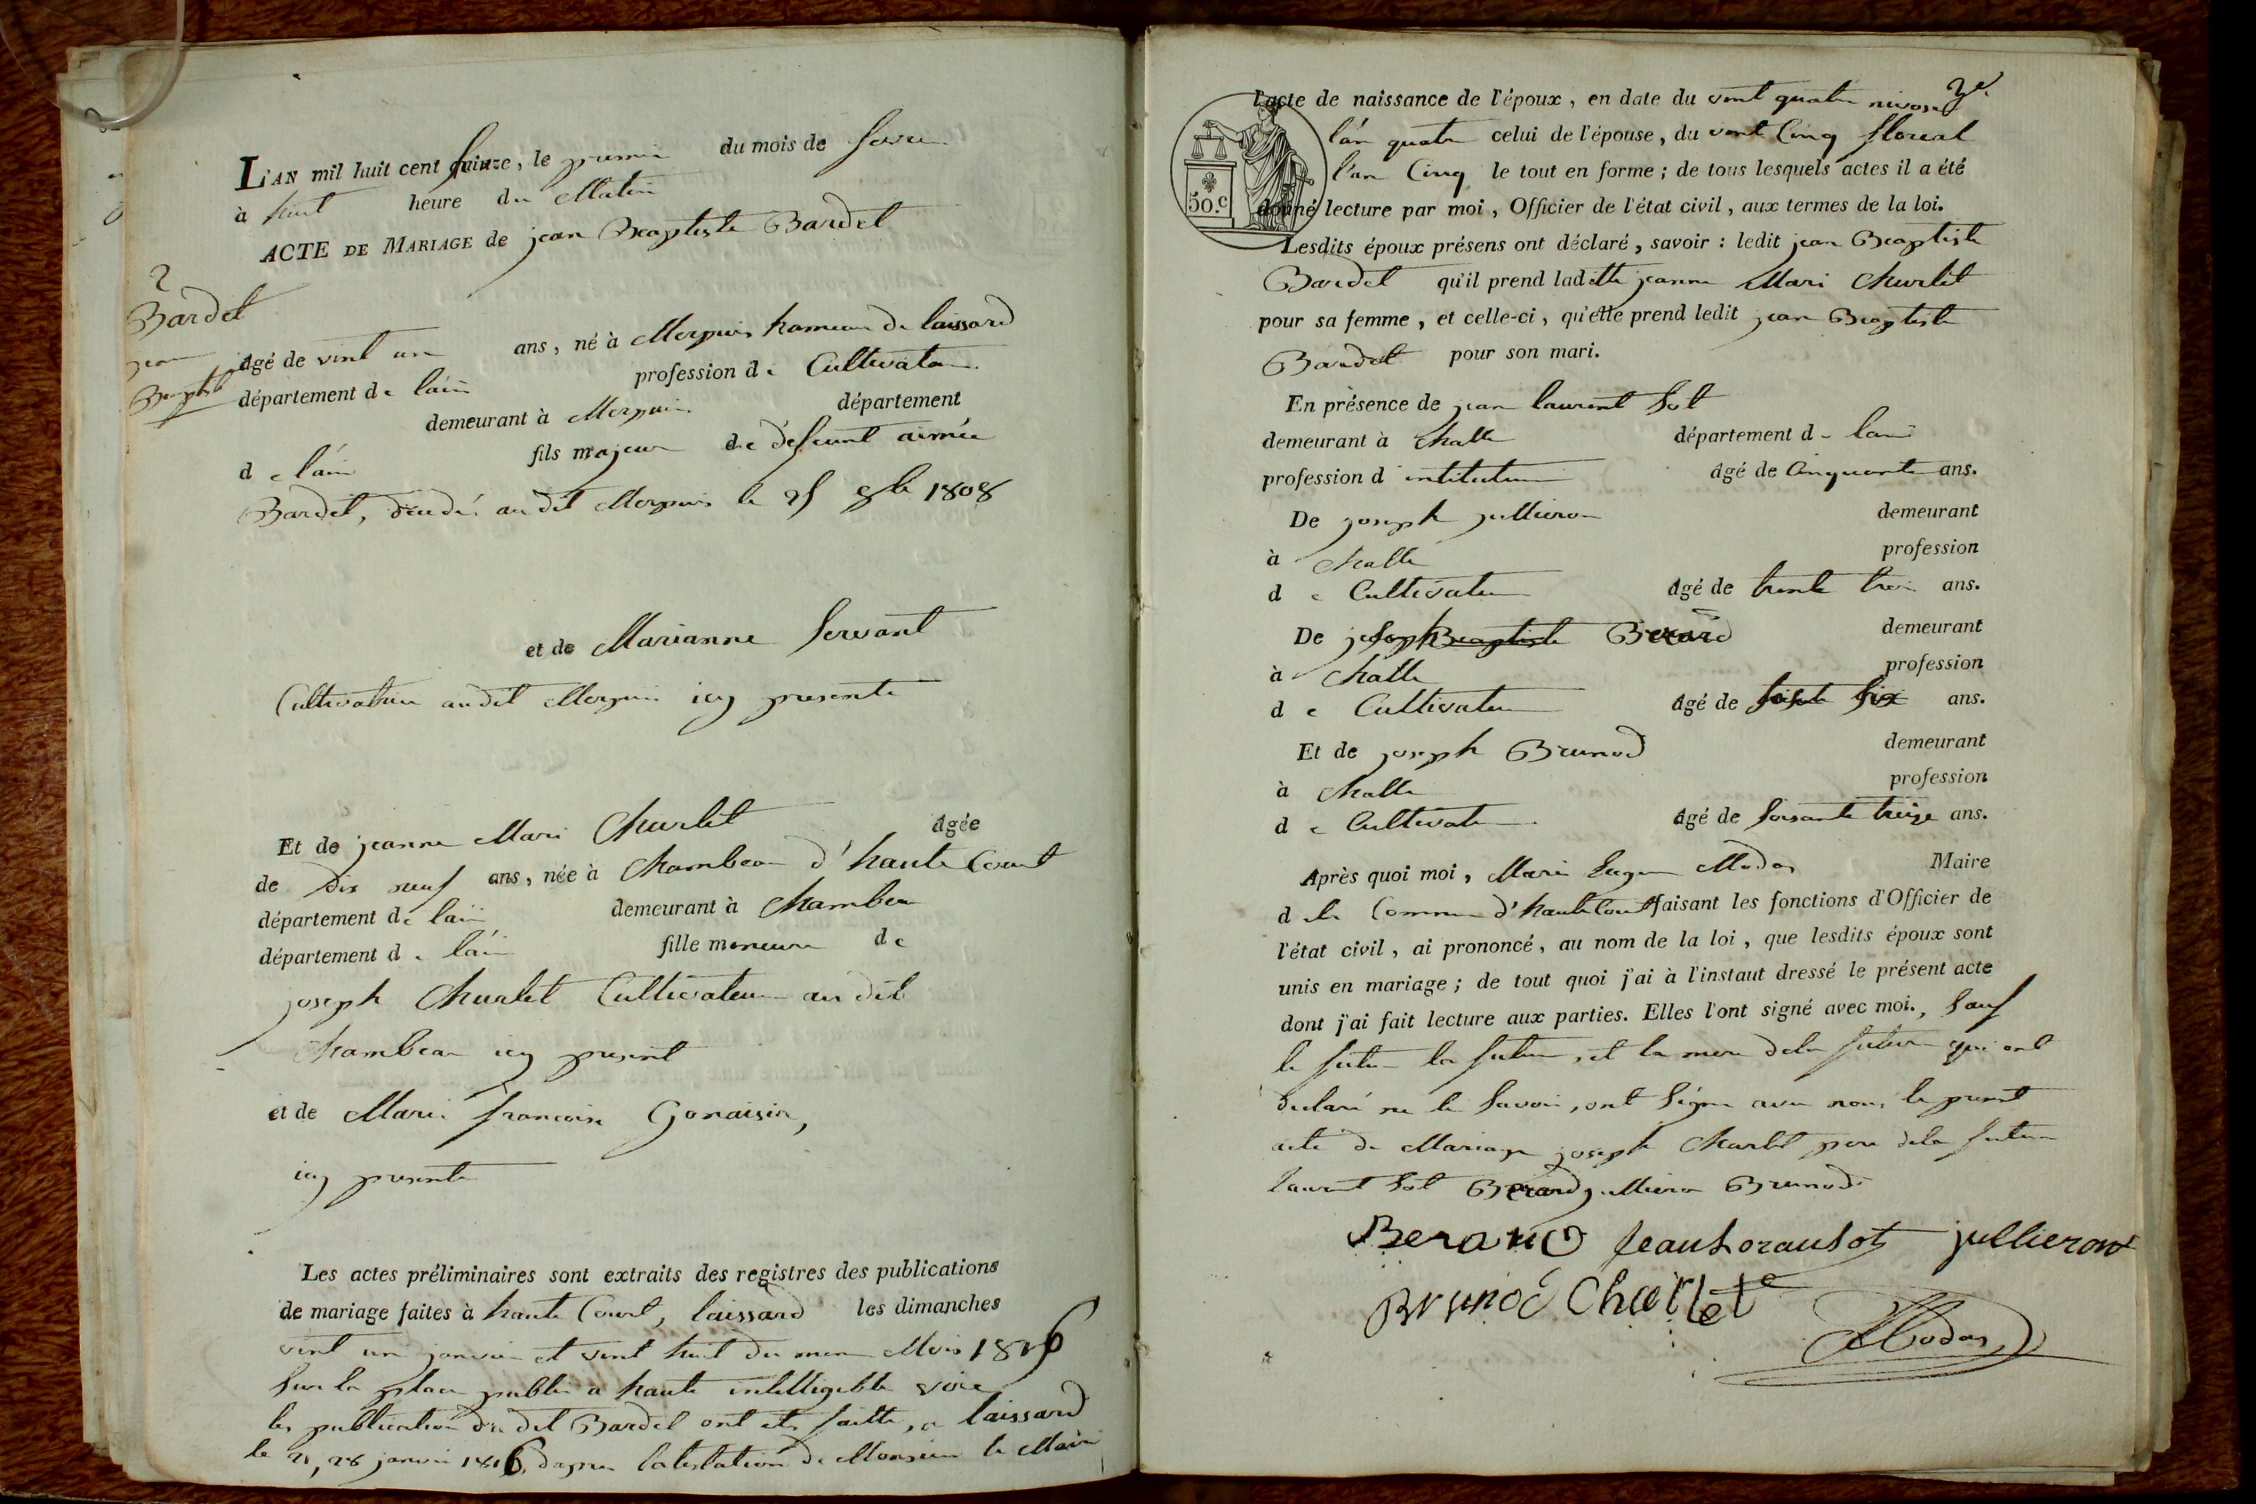 L'AN mil huit cent seize, le premier du mois de fevrier
à huit heure du Matin
ACTE DE MARIAGE de jean Baptiste Bardet
2
Bardet
jean
Baptiste
âgé de vint un ans, né à Merpuis hameau de laissard
département de lain profession de Cultivateur
demeurant à Merpuis département
de lain fils majeur de défeunt aimée
Bardet, décédé au dit Merpuis le 25 8bre 1808
et de Marianne Servant
Cultivatrice au dit Merpuis icy presente
Et de jeanne Marie Churlet âgée
de dix neuf ans, née à Chambeau d'haute Court
département de lain demeurant à Chambeau
département de lain fille mineure de
joseph Churlet Cultivateur au dit
Chambeau icy present
et de Marie francoise Gonaisin,
icy presente
Les actes préliminaires sont extraits des registres des publications
de mariage faites à haute Court, laissard les dimanches
vint un janvier et vint huit du meme Mois 1816
Sur la place public a haute intelligible voix
les publication du dit Bardet ont ete faitte, a laissard
le 21, 28 janvier 1816, dapres latestation de Monsieur le Maire
l'acte de naissance de l'époux, en date du vint quatre nivose
l'an quatre celui de l'épouse, du vint Cinq floreal
l'an Cinq le tout en forme; de tous lesquels actes il a été
50.c
donné lecture par moi, Officier de l'état civil, aux termes de la loi.
Lesdits époux présens ont déclaré, savoir: ledit jean Baptiste
Bardet qu'il prend laditte jeanne Marie Churlet
pour sa femme, et celle-ci, qu'elle prend ledit jean Baptiste
Bardet pour son mari.
En présence de jean laurent Sot
demeurant à Challe département de lain
profession d'instituteur âgé de Cinquante ans.
De joseph jullieron demeurant
à Challe profession
de Cultivateur âgé de trente trois ans.
De joseph Baptiste Berard demeurant
à Challe profession
de Cultivateur âgé de six ans.
Et de joseph Brunod demeurant
à Challe profession
de Cultivateur âgé de soisante treize ans.
Après quoi moi, Marie Eugene Modas Maire
de la Commune d'haute Court faisant les fonctions d'Officier de
l'état civil, ai prononcé, au nom de la loi, que lesdits époux sont
unis en mariage; de tout quoi j'ai à l'instaut dressé le présent acte
dont j'ai fait lecture aux parties. Elles l'ont signé avec moi., Sauf
le futur la future, et la mere dela future qui ont
declaré ne le Savoir, ont Signe avec nous le present
acte de Mariage joseph Churlet pere dela future
laurent Sot Berard jullieron Brunod
Beraud jeanLoransot jullieron
Brunod Charlet
Modas